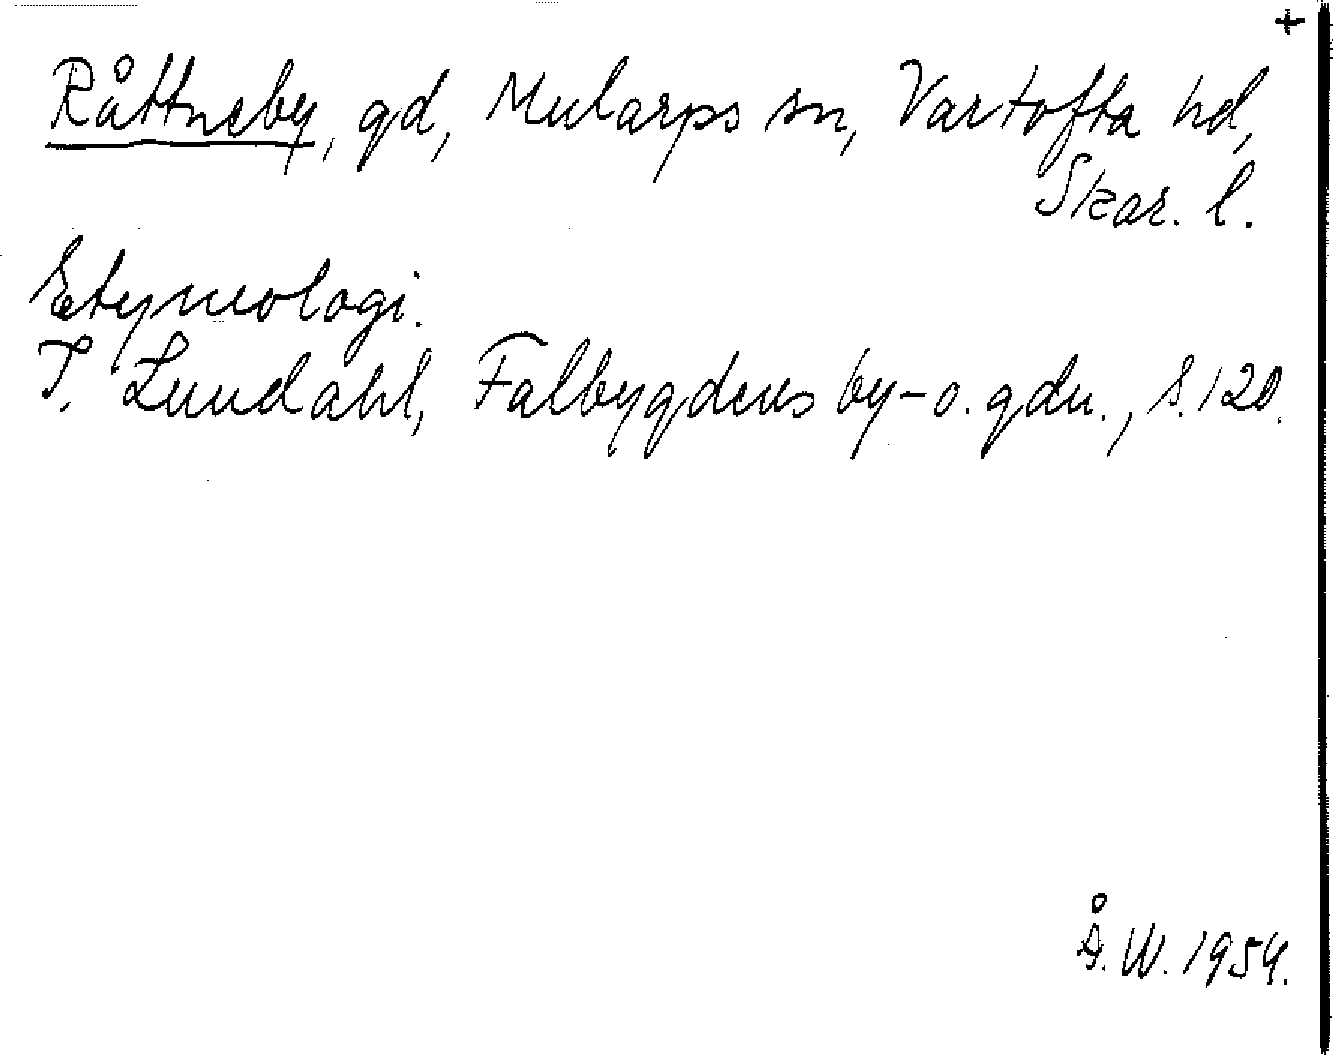 +
Råttneby, gd, Mularps sn, Vartofta hd,
Skar. l.
Etymologi.
I. Lundahl, Falbygdens by- o. gdn., s. 120.
Å. W. 1954.